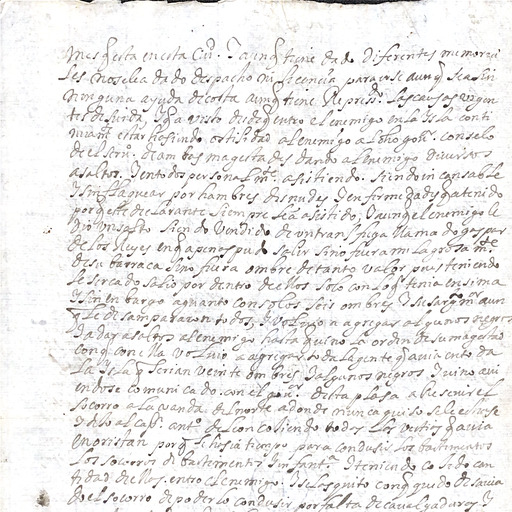 mes q esta en esta Ciu. I aunq tiene dado diferentes memoria
les no se le a dado despacho ni licencia para irse aunq sea sin
ninguna ayuda de costa aunq tiene Represdo. las causas urgen
tes de su ida, I q a visto desde q entro el enemigo en la Isla conti
nuamte estar hasiendo ostilidad al enemigo
de el serv. de ambas magestades dando al enemigo diversos
asaltos. I en todos personalmte. asistiendo. siendo incansable
I sin flaquear por hambres desnudes I enfermedades q a tenido
porq este declarante siempre le a asistido, I aunq el enemigo le
dio un salto siendo vendido de un transfuga llamado gaspar
de los Reyes en q apenas pudo salir sino fuera milagrosamte
de su barraca sino fuera ombre de tanto valor pues teniendo
le sercado salio por dentro dellos solo con lo q tenia ensima
I sin enbargo aquanto con solos seis ombres I su sargto m. aun
q le desampararon todos, I volvio a agregar algunos negros
I a dar asaltos al enemigo hasta q vino la orden de su magestad
con q con ella volvio a agregar toda la gente q avia en toda
la Isla q serian veinte ombres I algunos negros I vino avi
endose comunicado con el gor. desta plasa a Resevir el
socorro a la vanda del norte adonde nunca quiso sele echase
I dijo al capn. anto. de leon cosiendo todos los vestidos q avia
en oristan porq se hasia tiempo para condusir los bastimentos
los socorros de bastimentos I infanta. I teniendo cojido can
tidad dellos. entro el enemigo. I se los quito con q quedo desavia
do el socorro de poderlo condusir por falta de cavalgaduras I